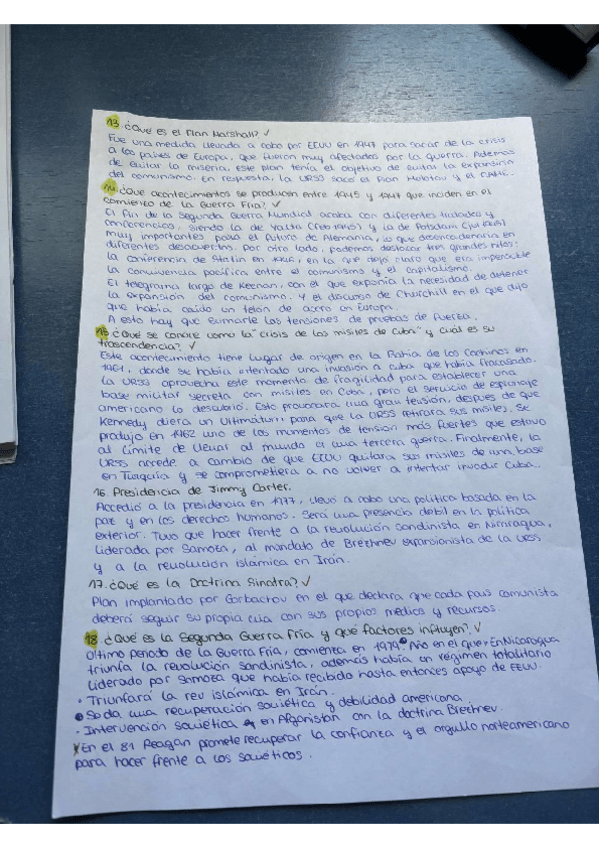 13. ¿Qué es el Plan Marshall? ✓
Fue una medida llevada a cabo por EEUU en 1947 para sacar de la crisis
a los países de Europa, que fueron muy afectados por la guerra. Además
de evitar la miseria, este plan tenía el objetivo de evitar la expansión
del comunismo. En respuesta, la URSS sacó el Plan Molotov y el
14. ¿Qué acontecimientos se producen entre 1945 y 1947 que inciden en el
comienzo de la Guerra Fría? ✓
El fin de la Segunda Guerra Mundial acaba con diferentes tratados y
conferencias, siendo la de Yalta (Feb 1945) y la de Potsdam (Jul 1945)
muy importantes para el futuro de Alemania, lo que desencadenaría en
diferentes desacuerdos. Por otro lado, podemos destacar tres grandes hitos:
la conferencia de Stalin en 1946, en la que dejó claro que era imposible
la convivencia pacífica entre el comunismo y el capitalismo.
El telegrama largo de Keenan, con el que exponía la necesidad de detener
la expansión del comunismo. Y el discurso de Churchill en el que dijo
que había caído un telón de acero en Europa.
A esto hay que sumarle las tensiones de pruebas de fuerza.
15 ¿Qué se conoce como la "crisis de los misiles de Cuba" y cuál es su
trascendencia? ✓
Este acontecimiento tiene lugar de origen en la Bahía de los Cochinos en
1961, donde se había intentado una invasión a Cuba que había fracasado.
La URSS aprovecha este momento de fragilidad para establecer una
base militar secreta con misiles en Cuba, pero el servicio de espionaje
americano lo descubrió. Esto provocará una gran tensión, después de que
Kennedy diera un Ultimátum para que la URSS retirara sus misiles. Se
produjo en 1962 uno de los momentos de tensión más fuertes que estuvo
al límite de llevar al mundo a una tercera guerra. Finalmente, la
URSS accede a cambio de que EEUU quitara sus misiles de una base
en Turquía y se comprometiera a no volver a intentar invadir Cuba.
16. Presidencia de Jimmy Carter.
Accedió a la presidencia en 1977, llevó a cabo una política basada en la
paz y en los derechos humanos. Será una presencia débil en la política
exterior. Tuvo que hacer frente a la revolución sandinista en Nicaragua,
liderada por Samoza, al mandato de Brethnev expansionista de la URSS
y a la revolución islámica en Irán.
17. ¿Qué es la Doctrina Sinatra? ✓
Plan implantado por Gorbachov en el que declara que cada país comunista
deberá seguir su propia vía con sus propios medios y recursos.
18 ¿Qué es la Segunda Guerra Fría y qué factores influyen? ✓
Último periodo de la Guerra Fría, comienza en 1979. Año en el que • En Nicaragua
triunfa la revolución sandinista, además había un régimen totalitario
liderado por Samoza que había recibido hasta entonces apoyo de EEUU.
• Triunfará la rev islámica en Irán.
• Se da una recuperación soviética y debilidad americana.
• Intervención soviética en Afganistán con la doctrina Brethnev.
Y En el 81 Reagan promete recuperar la confianza y el orgullo norteamericano
para hacer frente a los soviéticos.